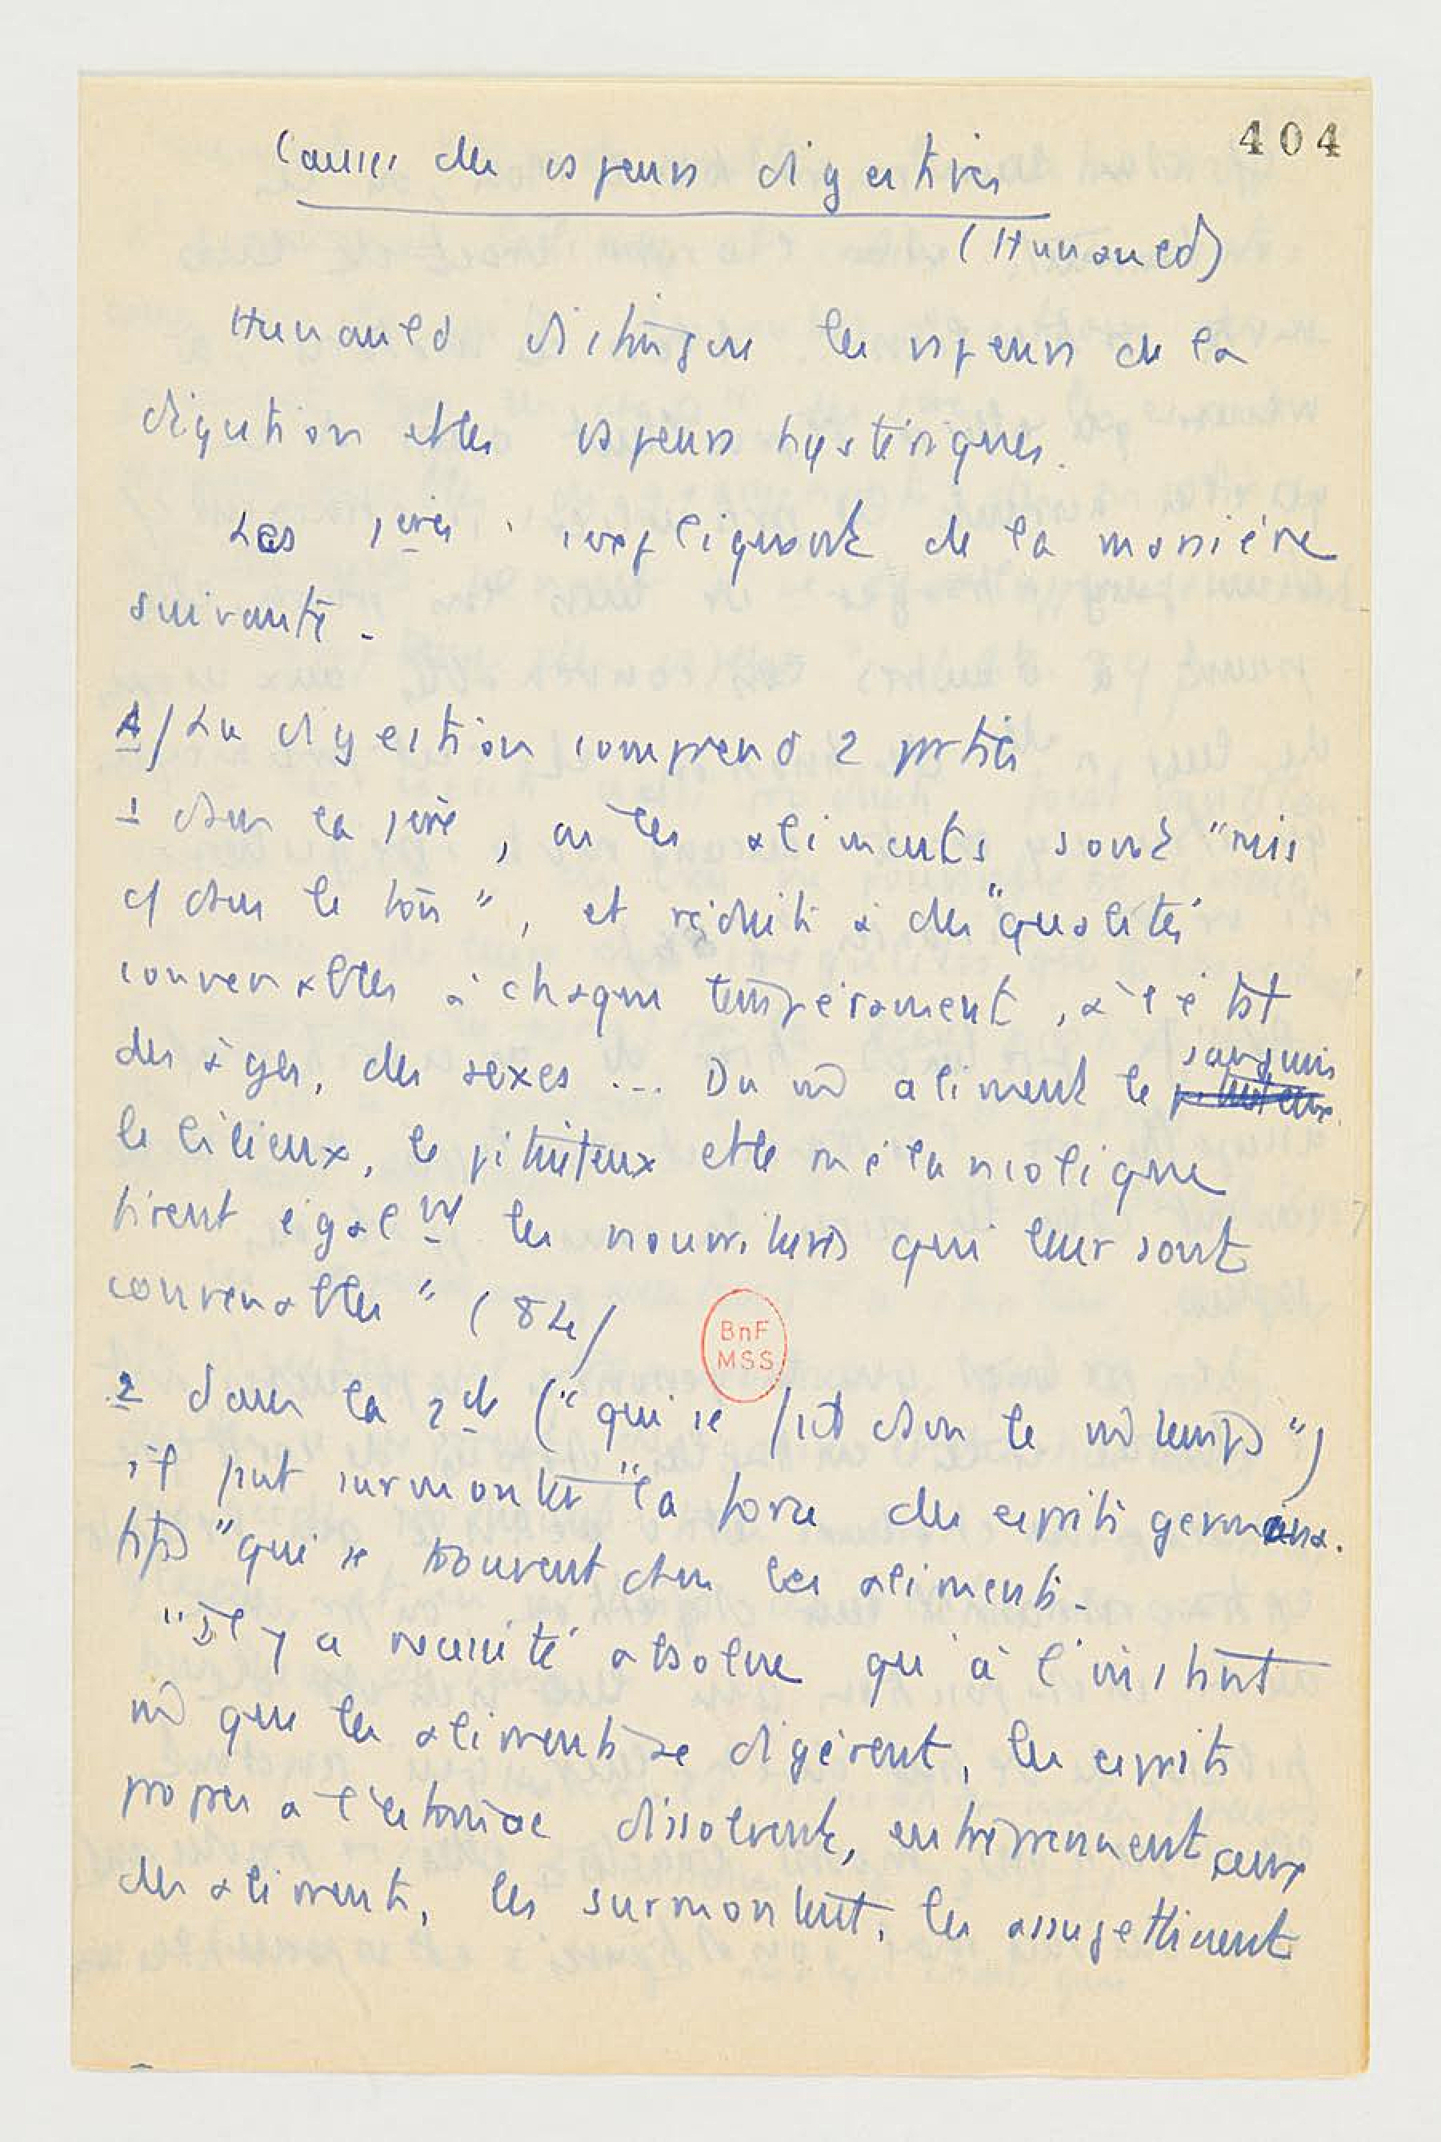 404
Causes des vapeurs digestives
(Hunauld)
Hunauld distingue les vapeurs de la
digestion et les vapeurs hystériques.
Les 1ères s'expliquent de la manière
suivante.
A/ La digestion comprend 2 parties
1 dans la 1ère, où les aliments sont "mis
dans le ton", et réduits à des "qualités
convenables à chaque tempérament, à l'état
des âges, des sexes ... Du m̂ aliment le sanguin
le bilieux, le pituiteux et le mélancolique
tirent égalemt les nourritures qui leur sont
convenables" (84)
2 dans la 2de ("qui se fait dans le m̂ temps")
il faut surmonter "la force des esprits
qui se trouvent dans les aliments.
"Il y a nécessité absolue qu'à l'instant
m̂ que les aliments se digèrent, les esprits
propres à l'estomac dissolvent, entreprennent ceux
des aliments, les surmontent, les assujettissent
BnF
MSS